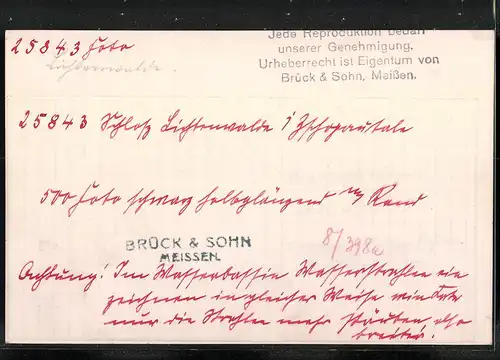 25843 Foto
Lichtenwalde.
Jede Reproduktion bedarf
unserer Genehmigung.
Urheberrecht ist Eigentum von
Brück & Sohn, Meißen.
25843 Schloß Lichtenwalde i Zschopautale
500 Foto schwarz halbglänzend m Rand
BRÜCK & SOHN
MEISSEN.
8/398a
Achtung! Im Wasserbassin Wasserstrahlen ein
zeichnen in gleicher Weise wie
nur die Strahlen mehr stäuben also
breiter.